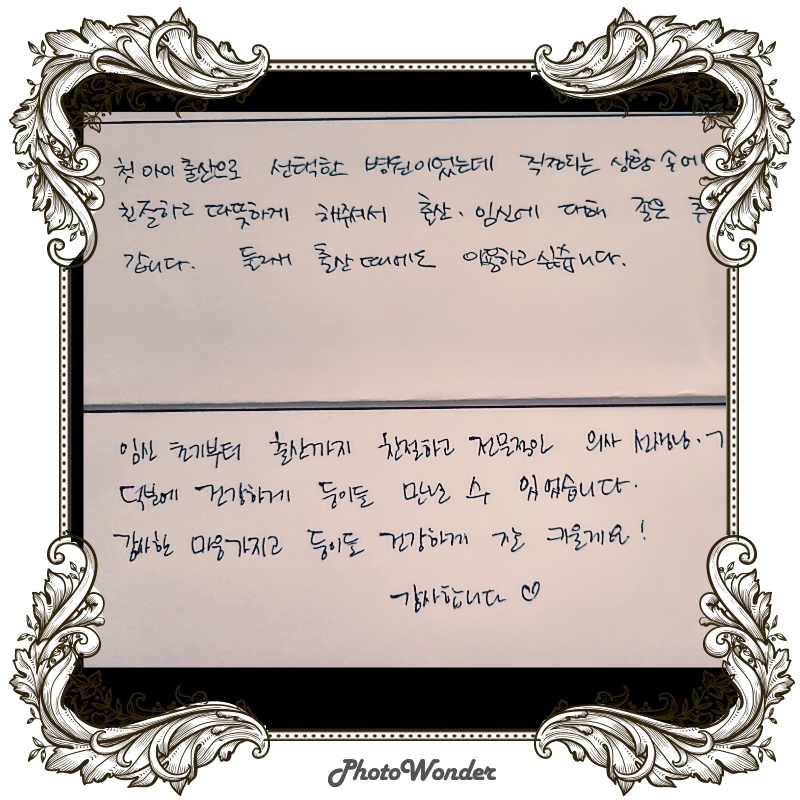 첫 아이 출산으로 선택한 병원이었는데 걱정되는 상황 속에
친절하고 따뜻하게 해주셔서 출산·임신에 대해 좋은 추
갑니다. 둘째 출산 때에도 이용하고 싶습니다.
임신 초기부터 출산까지 친절하고 전문적인 의사 선생님·
덕분에 건강하게 둥이들 만날 수 있었습니다.
감사한 마음가지고 둥이들 건강하게 잘 키울게요!
감사합니다 ♡
PhotoWonder